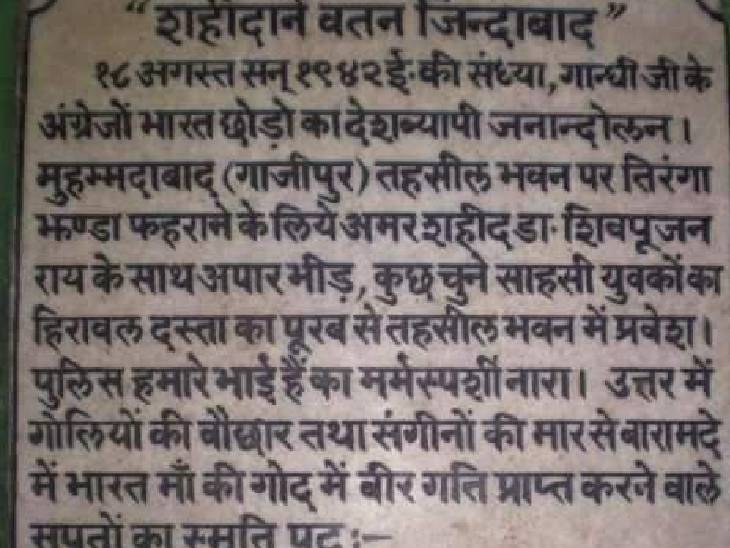 “शहीदाने वतन जिन्दाबाद”
१८ अगस्त सन् १९४२ ई· की संध्या, गान्धी जी के
अंग्रेजों भारत छोड़ो का देशव्यापी जनान्दोलन।
मुहम्मदाबाद (गाजीपुर) तहसील भवन पर तिरंगा
झण्डा फहराने के लिये अमर शहीद डा· शिवपूजन
राय के साथ अपार भीड़, कुछ चुने साहसी युवकों का
हिरावल दस्ता का पूरब से तहसील भवन में प्रवेश।
पुलिस हमारे भाई हैं का मर्मस्पर्शी नारा। उत्तर में
गोलियों की बौछार तथा संगीनों की मार से बारामदे
में भारत माँ की गोद में बीर गति प्राप्त करने वाले
सपूतों का स्मृति पट :–